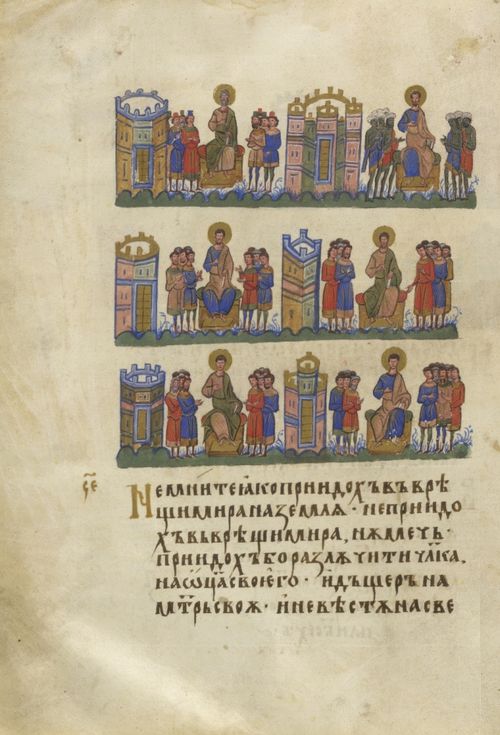 с҃е
Не мните ꙗко приидохъ въврѣ
щи мира на землѧ · не приидо
хъ въврѣщи мира, нѫ мечь ·
приидохъ бо разлѫчити чл҃ка,
на ѡц҃а своего · и дъщерь на
мт҃рь своѫ · и невѣстѫ на све